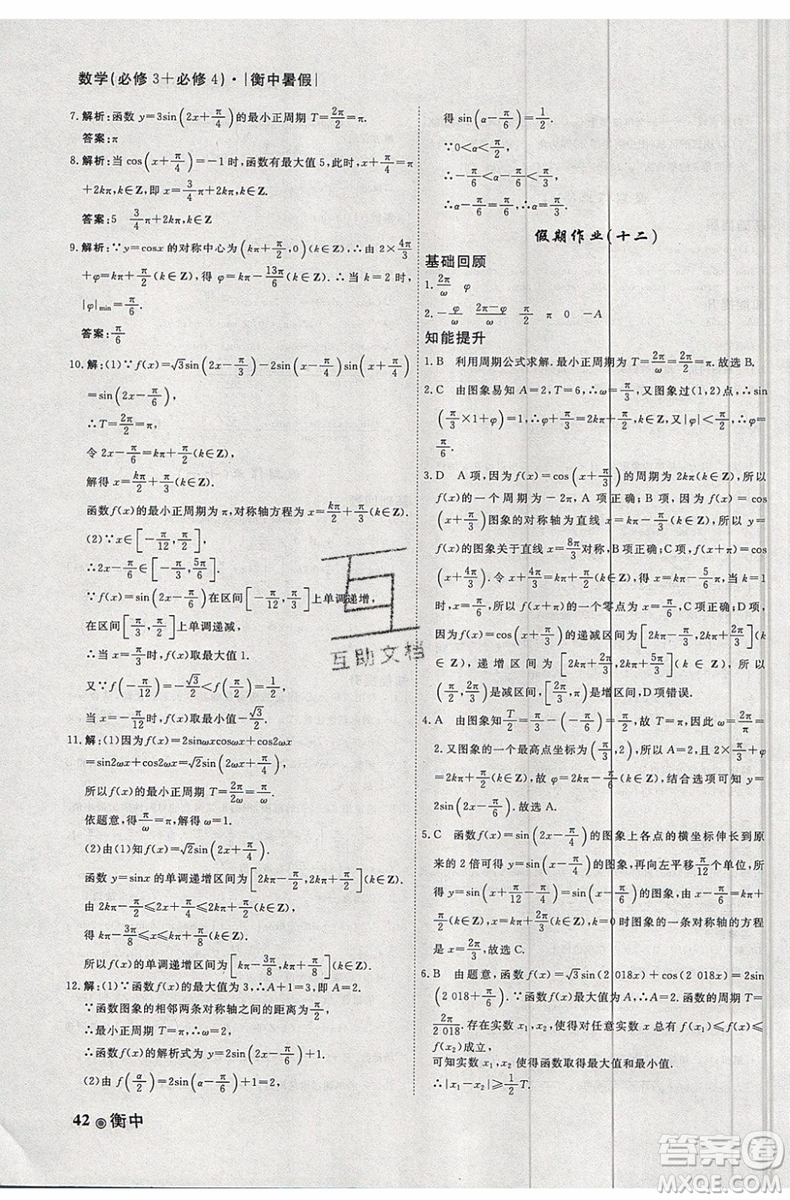 数学(必修3+必修4)·|衡中暑假|
7. 解析:函数 y=3sin(2x+π/4)的最小正周期 T=2π/2=π.
答案:π
8. 解析:当 cos(x+π/4)=-1时,函数有最大值5,此时,x+π/4=π
+2kπ,k∈Z,即 x=3/4π+2kπ,k∈Z.
答案:5 3/4π+2kπ,k∈Z
9. 解析:∵y=cosx的对称中心为(kπ+π/2,0)(k∈Z),∴由 2×4π/3
+φ=kπ+π/2(k∈Z),得 φ=kπ-13π/6(k∈Z).∴当 k=2时,
|φ|min=π/6.
答案:π/6
10. 解:(1)∵f(x)=√3sin(2x-π/3)-2sin(x-π/4)sin(x+π/4)
=sin(2x-π/6),
∴T=2π/2=π.
令 2x-π/6=kπ+π/2(k∈Z),
解得 x=kπ/2+π/3(k∈Z).
函数 f(x)的最小正周期为π,对称轴方程为 x=kπ/2+π/3(k∈Z).
(2)∵x∈[-π/12,π/2],
∴2x-π/6∈[-π/3,5π/6].
∵f(x)=sin(2x-π/6)在区间[-π/12,π/3]上单调递增,
在区间[π/3,π/2]上单调递减,
∴当 x=π/3时,f(x)取最大值1.
又∵f(-π/12)=-√3/2<f(π/2)=1/2,
当 x=-π/12时,f(x)取最小值-√3/2.
11. 解:(1)因为 f(x)=2sinωxcosωx+cos2ωx
=sin2ωx+cos2ωx=√2sin(2ωx+π/4),
所以 f(x)的最小正周期 T=2π/2ω=π/ω.
依题意,得π/ω=π,解得 ω=1.
(2)由(1)知 f(x)=√2sin(2x+π/4).
函数 y=sinx 的单调递增区间为[2kπ-π/2,2kπ+π/2](k∈Z).
由 2kπ-π/2≤2x+π/4≤2kπ+π/2(k∈Z),
得 kπ-3π/8≤x≤kπ+π/8(k∈Z).
所以 f(x)的单调递增区间为[kπ-3π/8,kπ+π/8](k∈Z).
12. 解:(1)∵函数 f(x)的最大值为3,∴A+1=3,即 A=2.
∵函数图象的相邻两条对称轴之间的距离为π/2,
∴最小正周期 T=π,∴ω=2,
∴函数 f(x)的解析式为 y=2sin(2x-π/6)+1.
(2)由 f(α/2)=2sin(α-π/6)+1=2,
42 衡中
得 sin(α-π/6)=1/2.
∵0<α<π/2,
∴-π/6<α-π/6<π/3.
∴α-π/6=π/6,∴α=π/3.
假期作业(十二)
基础回顾
1. 2π/ω φ
2. -φ/ω (2π-φ)/ω π/2 π 0 -A
知能提升
1. B 利用周期公式求解.最小正周期为 T=2π/ω=2π/2=π.故选 B.
2. C 由图象易知 A=2,T=6,∴ω=π/3,又图象过(1,2)点,∴sin
(π/3×1+φ)=1,∴φ+π/3=2kπ+π/2,k∈Z,又|φ|<π/2,∴φ=
π/6.
3. D A项,因为 f(x)=cos(x+π/3)的周期为 2kπ(k∈Z),所以
f(x)的一个周期为-2π,A项正确;B项,因为 f(x)=cos
(x+π/3)图象的对称轴为直线 x=kπ-π/3(k∈Z),所以 y=
f(x)的图象关于直线 x=8π/3对称,B项正确;C项,f(x+π)=
cos(x+4π/3).令 x+4π/3=kπ+π/2(k∈Z),得 x=kπ-5/6π,当 k=
1时,x=π/6,所以 f(x+π)的一个零点为 x=π/6,C项正确;D项,
因为 f(x)=cos(x+π/3)的递减区间为[2kπ-π/3,2kπ+2π/3]
(k∈Z),递增区间为[2kπ+2π/3,2kπ+5π/3](k∈Z),所以
(π/2,2π/3)是减区间,[2π/3,π)是增区间,D项错误.
4. A 由图象知T/2=π/3-(-π/6)=π/2,故 T=π,因此 ω=2π/π=
2.又图象的一个最高点坐标为(π/3,2),所以 A=2,且 2×π/3+
φ=2kπ+π/2(k∈Z),故 φ=2kπ-π/6(k∈Z),结合选项可知 y=
2sin(2x-π/6).故选 A.
5. C 函数 f(x)=sin(2x-π/4)的图象上各点的横坐标伸长到原
来的2倍可得 y=sin(x-π/4)的图象,再向左平移π/12个单位,所
得图象的函数解析式为 g(x)=sin(x+π/12-π/4)=sin(x-π/6),
得 g(x)=sin(x-π/6)的图象,由 x-π/6=kπ+π/2,k∈Z,得 x=
2π/3+kπ,k∈Z,当 k=0时图象的一条对称轴的方程
是 x=2π/3,故选 C.
6. B 由题意,函数 f(x)=√3sin(2 018x)+cos(2 018x)=
2sin(2 018x+π/6),∴f(x)的最大值为 A=2.∵函数的周期 T=
2π/2 018.存在实数 x₁,x₂,使得对任意实数 x 总有 f(x₁)≤f(x)≤
f(x₂)成立,
可知实数 x₁,x₂ 使得函数是最大值和最小值.
∴|x₁-x₂|≥1/2T.
互
互助文档
答案圈